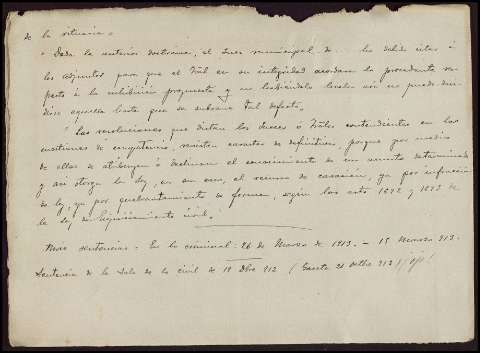 de la
" Dada la anterior doctrina, el Juez municipal de ... ha debido citar á
los adjuntos para que el Tral en su integridad acordara lo procedente res-
pecto á la inhibición propuesta y no habiéndolo hecho así no puede deci-
dirse aquella hasta que se subsane tal defecto.
" Las resoluciones que dictan los Jueces ó Trales contendientes en las
cuestiones de competencia, revisten caracter de definitivas, porque por medio
de ellas se atribuyen ó declinan el conocimiento de un asunto determinado
y así otorga la ley, en su caso, el recurso de casación, ya por infracción
de ley, ya por quebrantamiento de forma, según los arts 1692 y 1693 de
la ley de Enjuiciamiento civil.
Más sentencias: En lo criminal: 26 de Marzo de 1913. - 15 Marzo 913.
Sentencia de la Sala de lo civil de 19 Dbre 912 (Gaceta 21 912)